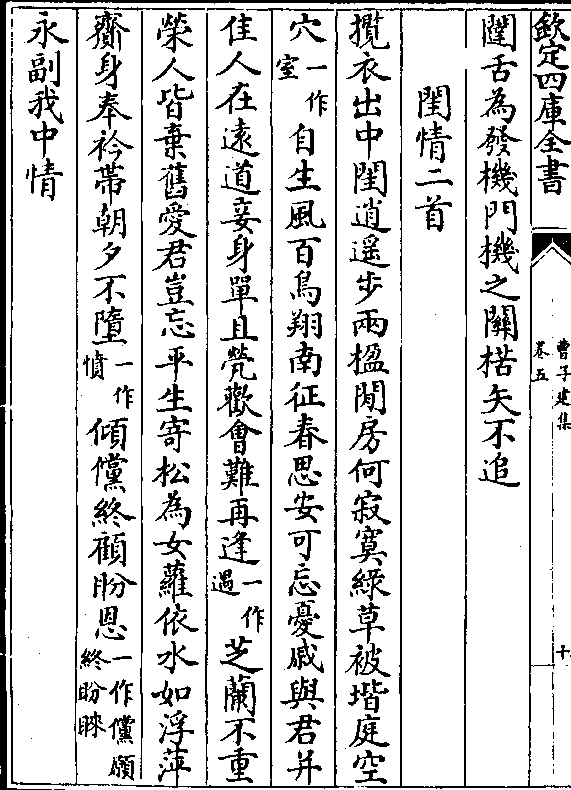 欽定四庫全書
曹子建集
卷五
十
闥舌為發機門機之闗楛矢不追
閨情二首
攬衣出中閨逍遥步兩楹閒房何寂寞綠草被堦庭空
穴一作室自生風百鳥翔南征春思安可忘憂戚與君并
佳人在遠道妾身單且煢歡會難再逢一作遇芝蘭不重
榮人皆棄舊愛君豈忘平生寄松為女蘿依水如浮萍
齎身奉衿帶朝夕不墮一作憤傾儻終顧盼恩一作儻願終盼睞
永副我中情